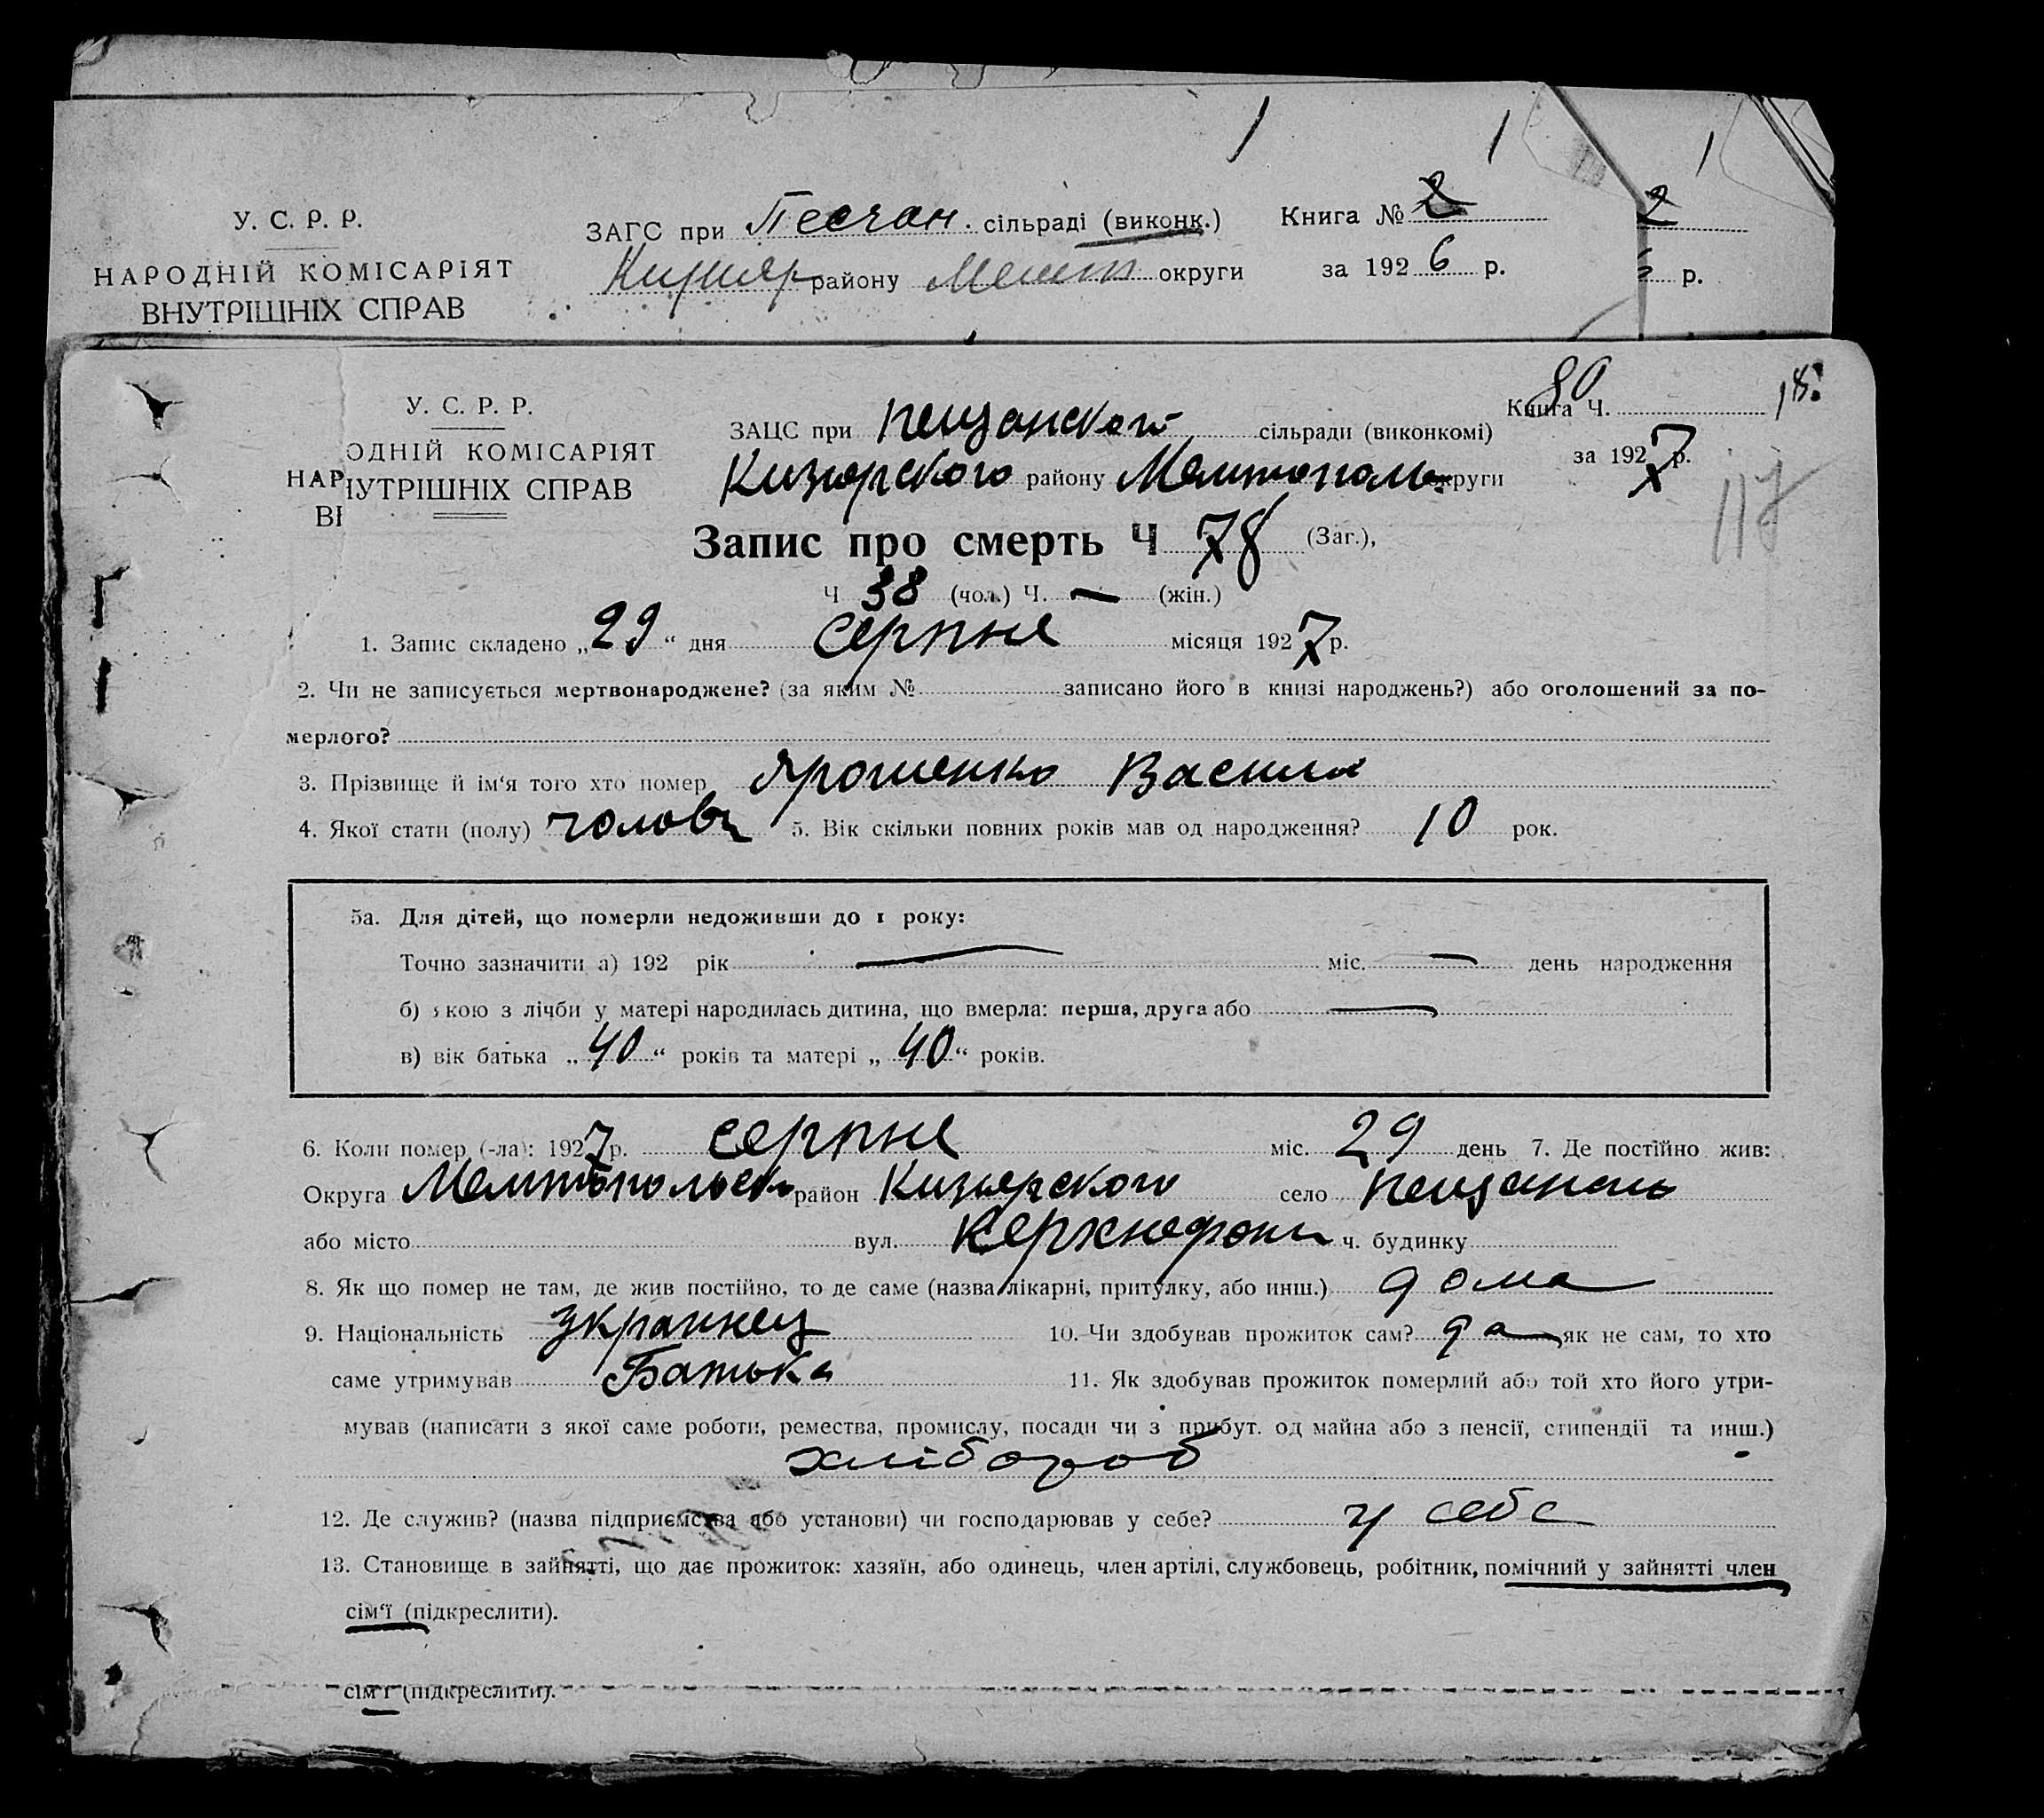 У. С. Р. Р.
НАРОДНІЙ КОМІСАРІЯТ
ВНУТРІШНІХ СПРАВ
ЗАГС при Песчан. сільраді (виконк.)
району Мелит округи
Книга № 2
за 1926 р.
2
6 р.
У. С. Р. Р.
ОДНІЙ КОМІСАРІЯТ
НАР ІУТРІШНІХ СПРАВ
ВІ
ЗАЦС при Пещанского сільради (виконкомі)
Кизиярского району Мелитополь округи
Книга Ч.
80
18
за 1927 р.
117
Запис про смерть Ч 78 (Заг.),
Ч 38 (чол.) Ч. — (жін.)
1. Запис складено „29“ дня серпня місяця 1927 р.
2. Чи не записується мертвонароджене? (за яким № записано його в книзі народжень?) або оголошений за по-
мерлого?
3. Прізвище й ім‘я того хто помер Ярошенко Василь
4. Якої стати (полу) чолов 5. Вік скільки повних років мав од народження? 10 рок.
5а. Для дітей, що померли недоживши до 1 року:
Точно зазначити а) 192 рік — міс. — день народження
б) якою з лічби у матері народилась дитина, що вмерла: перша, друга або —
в) вік батька „40“ років та матері „40“ років.
6. Коли помер (-ла): 1927 р. серпня міс. 29 день 7. Де постійно жив:
Округа Мелитопольск район Кизиярского село
або місто вул. ч. будинку
8. Як що помер не там, де жив постійно, то де саме (назва лікарні, притулку, або инш.) дома
9. Національність украинец 10. Чи здобував прожиток сам? да як не сам, то хто
саме утримував Батько 11. Як здобував прожиток померлий або той хто його утри-
мував (написати з якої саме роботи, ремества, промислу, посади чи з прибут. од майна або з пенсії, стипендії та инш.)
хлібороб
12. Де служив? (назва підприємства або установи) чи господарював у себе? у себе
13. Становище в зайнятті, що дає прожиток: хазяїн, або одинець, член артілі, службовець, робітник, помічний у зайнятті член
сім‘ї (підкреслити).
сім‘ї (підкреслити).